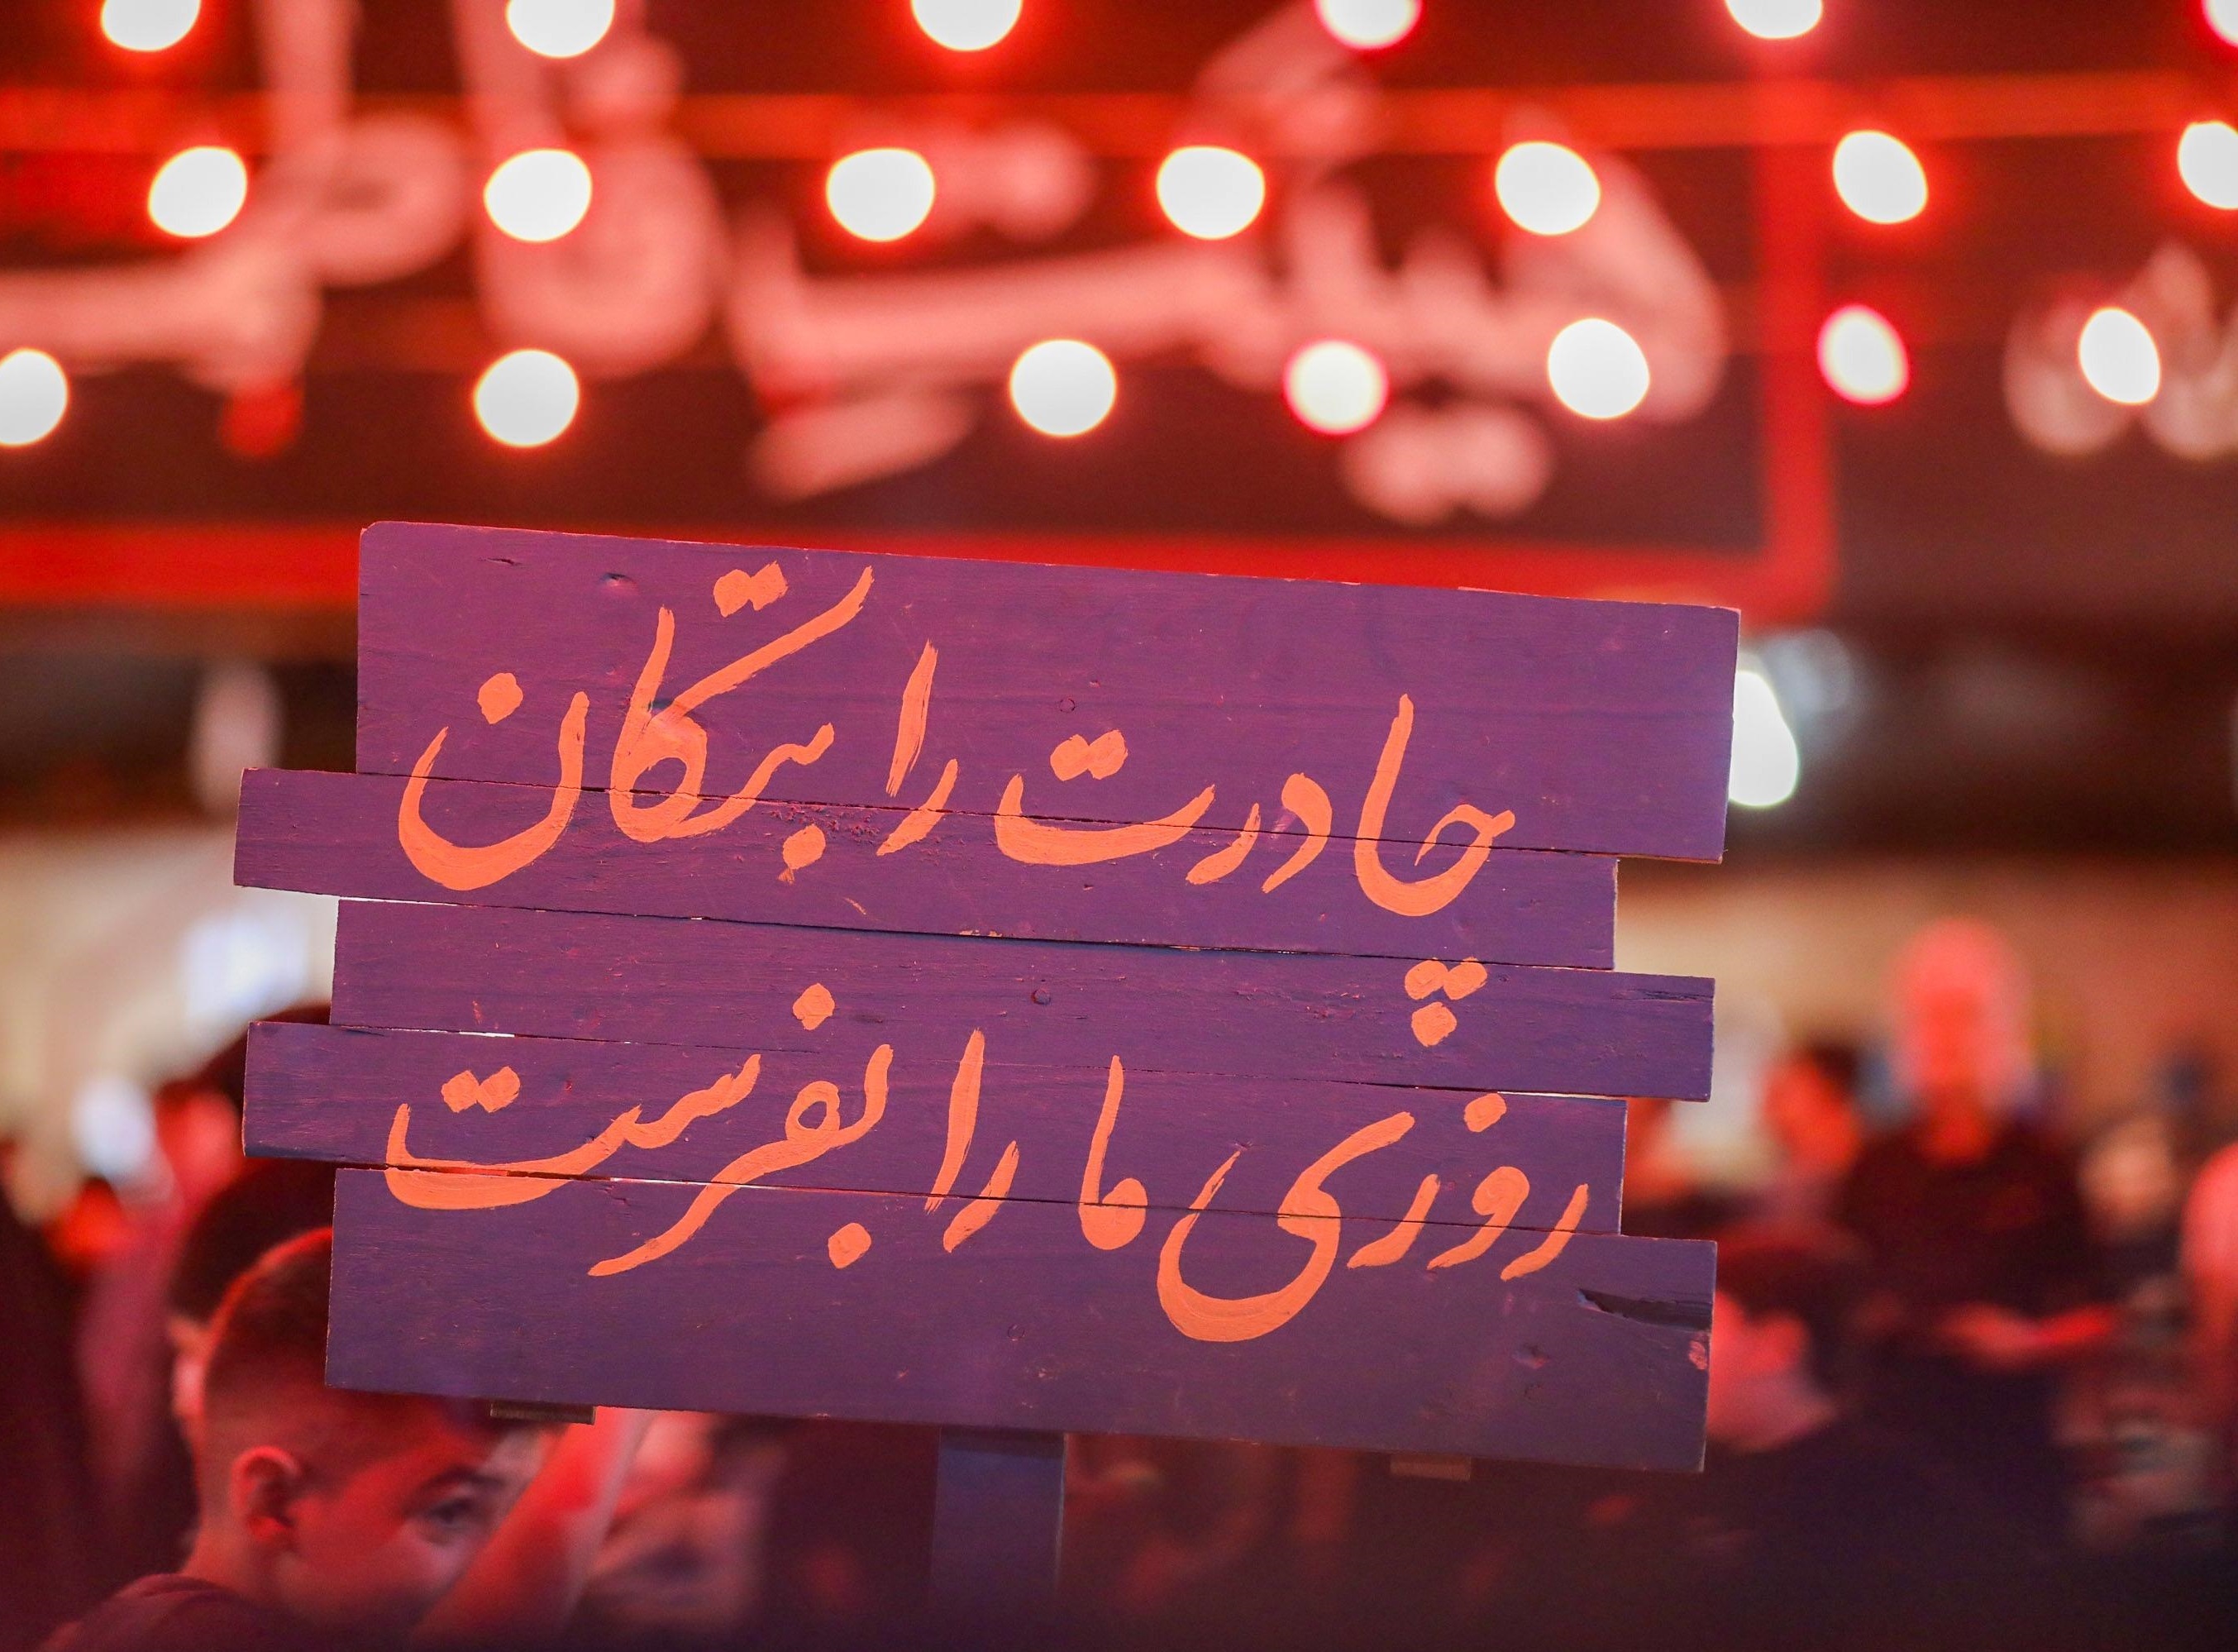 چادرت را بتکان
روزی ما را بفرست